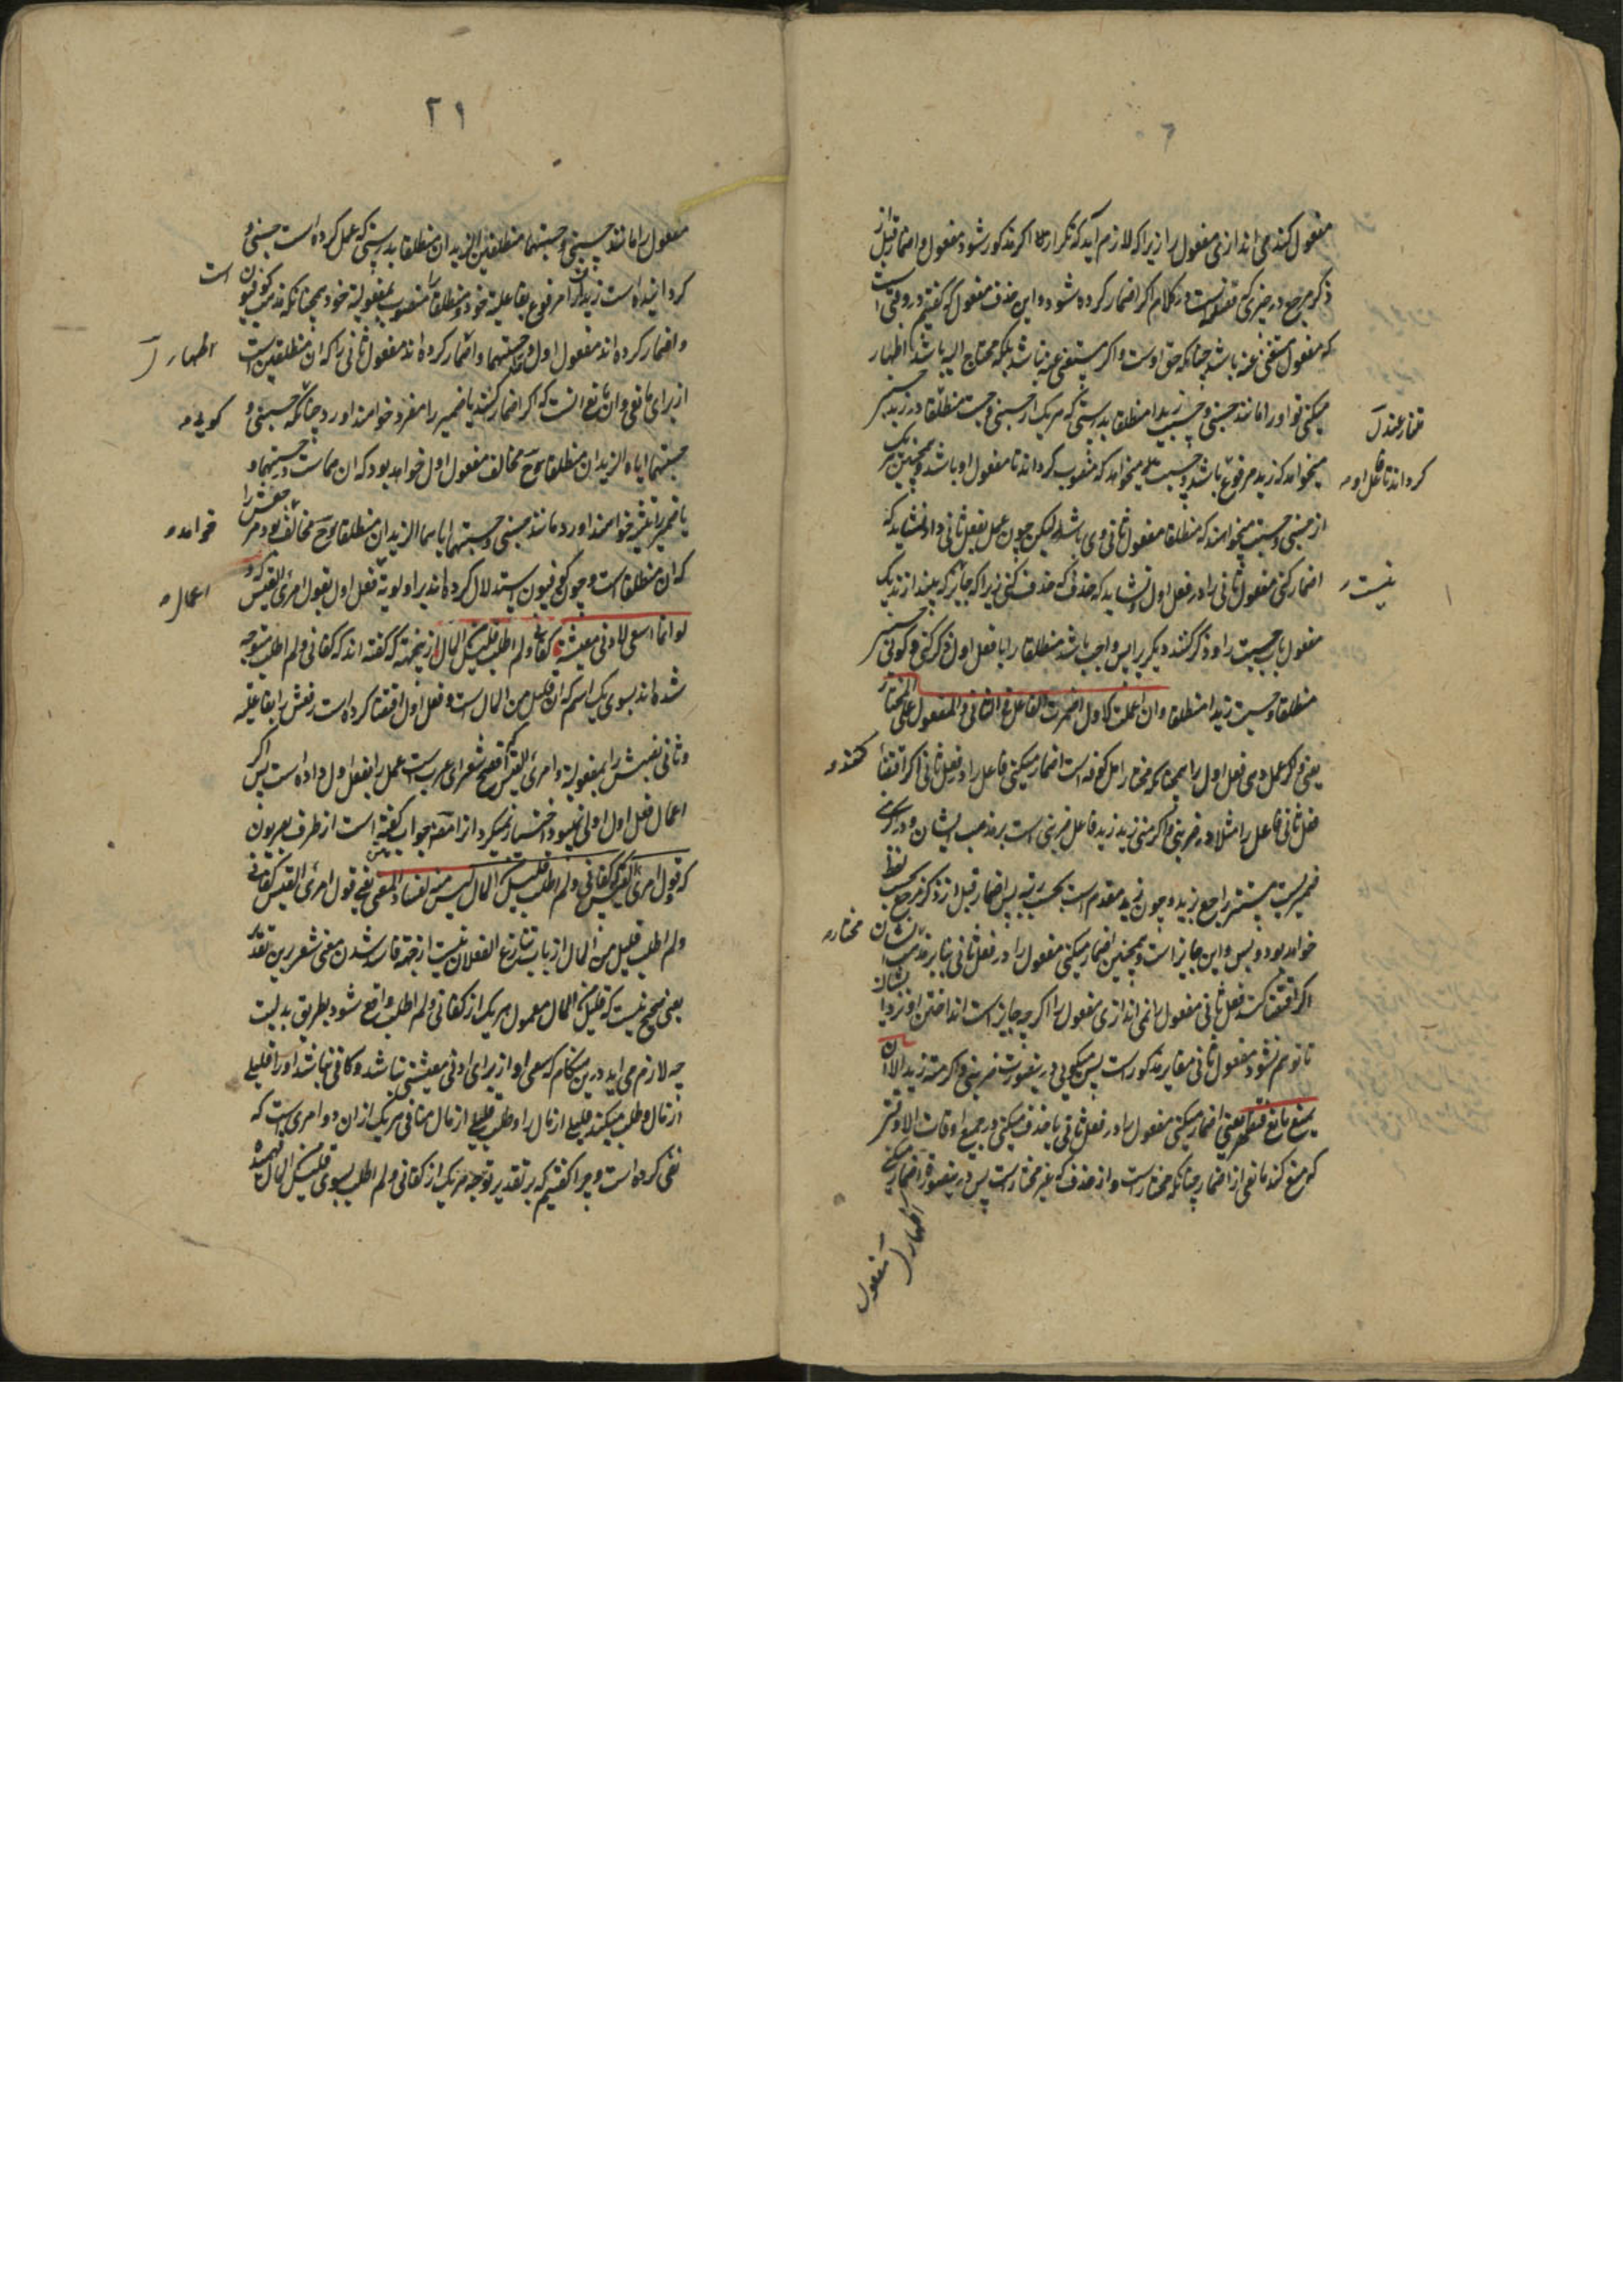 مفعول کنند می اندازی مفعول را زیرا که لازم آید که تکرار اکر مذکور شود مفعول و اضمار قبل از
ذکر مرجع در چیزی که فضله است در کلام اکر اضمار کرده شود و این حذف مفعول که کفتیم در وقتی است
که مفعول مستغنی عنه باشد چنانکه حق اوست و اکر مستغنی عنه نباشد بلکه محتاج الیه باشد اظهار
میکنی تو او را مانند حسبنی و حسبت زیدا منطلقا بدرستی که هر یک از حسبنی و حسبت منطلقا در زید
میخواهد که زید مرفوع باشد و حسبت میخواهد که منصوب کرداند تا مفعول او باشد و همچنین هر یک
از حسبنی و حسبت میخواهند که منطلقا مفعول ثانی وی باشد لیکن چون عمل بفعل ثانی دادند نشاید که
اضمار کنی مفعول ثانی را در فعل اول و نشاید که حذف کنی زیرا که جایز
مفعول باب حسبت را و ذکر کنند دیکر پس واجب باشد منطلقا را با فعل اول ذکر کنی و کوئی حسبنی
منطلقا و حسبت زیدا منطلقا و ان اعملت الاول اضمرت الفاعل فی الثانی و المفعول علی المختار
یعنی و اکر عمل دهی فعل اول را همچنانکه مختار اهل کوفه است اضمار میکنی فاعل را در فعل ثانی اکر اقتضا
فعل ثانی فاعل را مثلا در ضربنی و اکرمنی زید زید فاعل ضربنی است بر مذهب ایشان و در اکرمنی
ضمیریست مستتر راجع بزید و چون زید مقدم است بحسب رتبه پس اضمار قبل از ذکر مرجع بحسب لفظ
خواهد بود و بس و این جایز است و همچنین اضمار میکنی مفعول را در فعل ثانی بنابر مذهب ایشان
اکر اقتضا کند فعل ثانی مفعول را نمی اندازی مفعول را اکر چه جایز است انداختن او نزد ایشان
تا توهم نشود مفعول ثانی مغایر مذکور است پس میکویی درینصورت ضربنی و اکرمته زید الا ان
یمنع مانع فتظهر یعنی اضمار میکنی مفعول را در فعل ثانی یا حذف میکنی در جمیع اوقات الا وقتی
که منع کند مانعی از اضمار چنانکه مختار است و از حذف که غیر مختار است پس درینصورت اظهار میکنی
تنازعند
کرداند تا فاعل او
نیست
کند
مختار
اظهار مفعول
۲۱
مفعول را مانند حسبنی و حسبتهما منطلقین الزیدان منطلقا بدرستی که عمل کرده است حسبنی و
کردانیده است زیدان را مرفوع بفاعلیة خود و منطلقا را منصوب بمفعولیة خود همچنانکه مذهب کوفیون است
و اضمار کرده اند مفعول اول در حسبتهما و اضمار کرده اند مفعول ثانی را که ان منطلقین است
از برای مانعی و ان مانع انست که اکر اضمار کنند یا ضمیر را مفرد خواهند اورد چنانکه حسبنی و
حسبتهما ایاه الزیدان منطلقا مخالف مفعول اول خواهد بود که ان هماست در حسبتهما و
یا ضمیر را تثنیه خواهند اورد مانند حسبنی و حسبتهما ایاهما الزیدان منطلقا مخالف بود مرجعش را
که ان منطلقا است و چون کوفیون استدلال کرده اند بر اولویة فعل اول بقول امرئ القیس که
لو انما اسعی لادنی معیشة کفانی و لم اطلب قلیل من المال از ینجهة که کفته اند که کفانی و لم اطلب متوجه
شده اند بسوی یک اسم که ان قلیل من المال است و فعل اول اقتضا کرده است رفعش را بفاعلیة
و ثانی نصبش را بمفعولیة و امرئ القیس که افصح شعرای عرب است عمل را بفعل اول داده است پس اکر
اعمال فعل اول اولی نمیبود اختیار نمیکرد انرا مصنف جواب کفته است از طرف بصریون
که و قول امرئ القیس کفانی و لم اطلب قلیل من المال لیس منه لفساد المعنی یعنی قول امرئ القیس کفانی
و لم اطلب قلیل من المال از باب تنازع الفعلان نیست از جهة فاسد شدن معنی شعر برین تقدیر
یعنی صحیح نیست که قلیل من المال معمول هر یک از کفانی و لم اطلب واقع شود بطریق بدلیت
چه لازم می اید درین هنکام که سعی او از برای ادنی معیشتی نباشد و کافی نباشد او را قلیلی
از مال و طلب میکند قلیلی از مال را و طلب قلیلی از مال منافی هر یک از ان دو امریست که
نفی کرده است و چرا کفتیم که بر تقدیر توجه هر یک از کفانی و لم اطلب بسوی قلیل من المال
اظهار
کویی
خواهد
اعمال